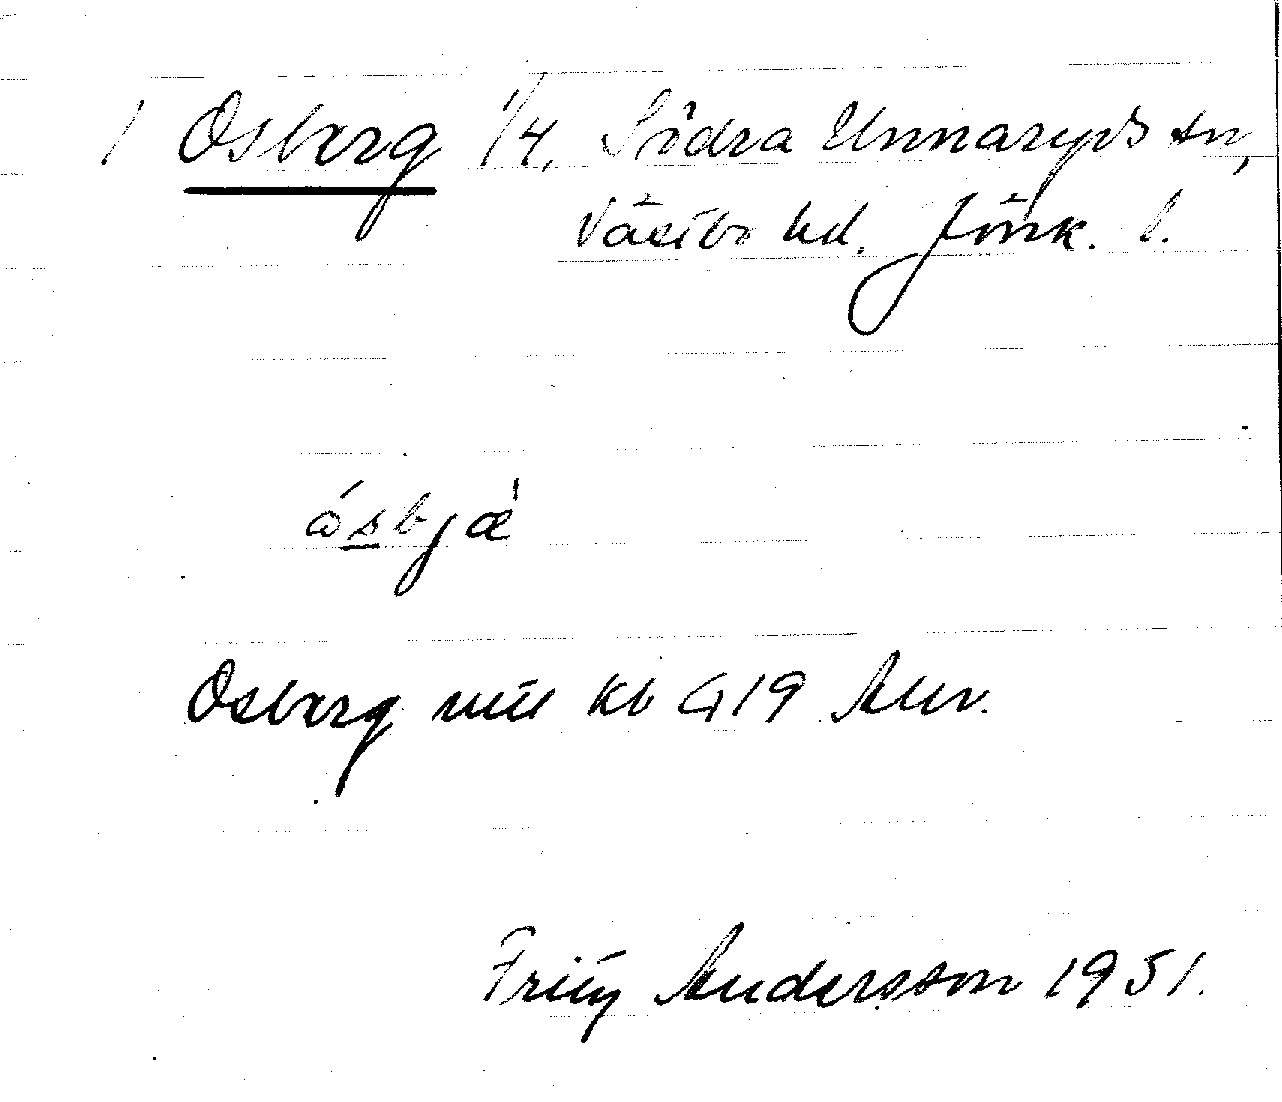 1 Osberg 1/4, Södra Unnaryds sn,
Västbo hd. Jönk. l.
Osberg Kb G 19
Fritz Andersson 1951.